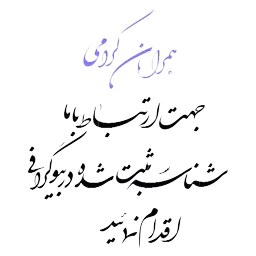 همراهان گرامی
جهت ارتباط با ما
شناسه ثبت شده در بیوگرافی
اقدام نمائید